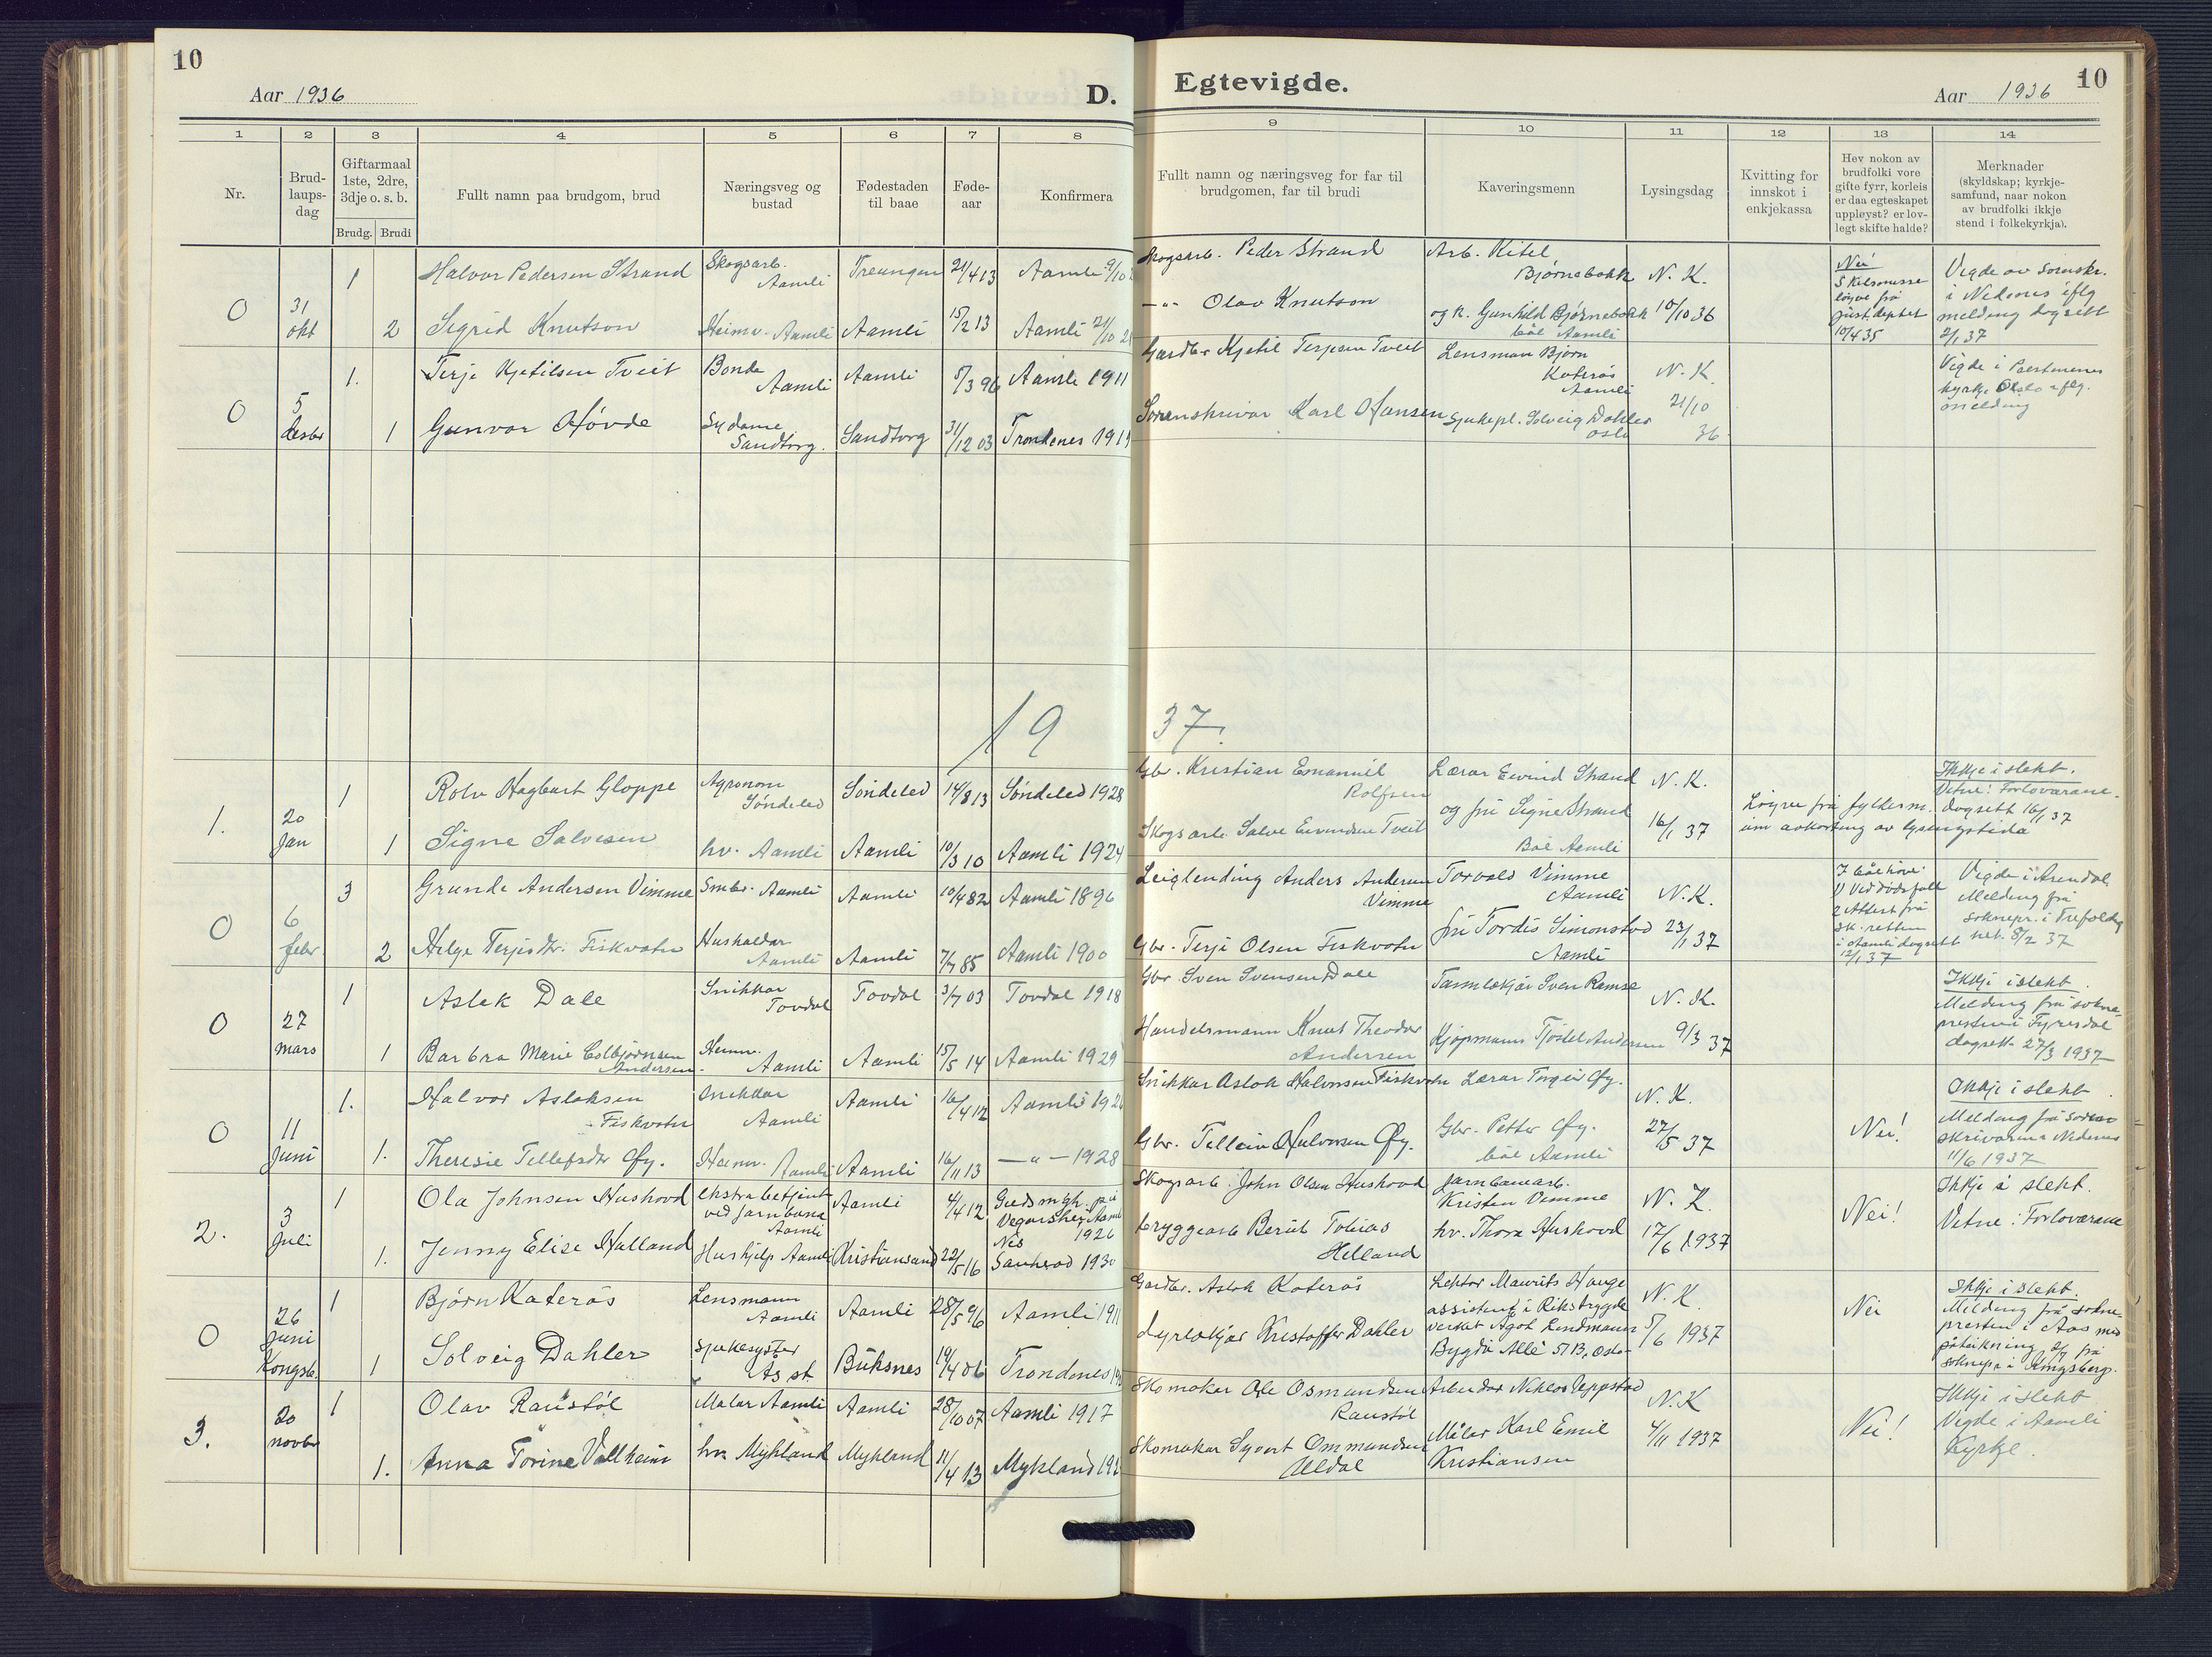 10
Aar 1936
D.
Egtevigde.
Aar 1936
10
1 2 3 4 5 6 7 8 9 10 11 12 13 14
Nr.
Brud-
laups-
dag
Giftarmaal
1ste, 2dre,
3dje o. s. b.
Brudg. Brudi
Fullt namn paa brudgom, brud
Næringsveg og
bustad
Fødestaden
til baae
Føde-
aar
Konfirmera
Fullt namn og næringsveg for far til
brudgomen, far til brudi
Kaveringsmenn
Lysingsdag
Kvitting for
innskot i
enkjekassa
Hev nokon av
brudfolki vore
gifte fyrr, korleis
er daa egteskapet
uppløyst? er lov-
legt skifte halde?
Merknader
(skyldskap; kyrkje-
samfund, naar nokon
av brudfolki ikkje
stend i folkekyrkja).
0
31
okt
1
Halvor Pedersen Strand
Skogsarb.
Aamli
Treungen
21/4 13
Aamli 9/10
Skogsarb. Peder Strand
Arb. Kitel
Bjørnebakk
N. K.
Nei
Skilsmisse
løyve frå
just. deptet
10/4 35
Vigde av Sorenskr.
i Nedenes iflg
melding dagsett
2/1 37
2
Sigrid Knutson
Heimv. Aamli
Aamli
15/2 13
Aamli 21/10
—"— Olav Knutson
og k. Gunhild Bjørnebakk
båe Aamli
10/10 36
0
5
desbr
1.
Terje Kjetilsen Tveit
Bonde
Aamli
Aamli
5/3 96
Aamli 1911
Gardbr Kjetil Terjesen Tveit
Lensman Bjørn
Katerås
Aamli
N. K.
21/10
36
Vigde i
kyrkje Oslo iflg.
melding
1
Gunvor Høvde
Sydame
Sandtorg.
Sandtorg
31/12 03
Trondenes 191
Sorenskrivar Karl Hansen
Sjukepl. Solveig Dahler
Oslo
19 37.
1.
20
Jan
1
Rolv Hagbart Gloppe
Agronom
Søndeled
Søndeled
14/8 13
Søndeled 1928
Gbr. Kristian Emanuel
Rolfsen
Lærar Eivind Strand
N. K.
Ikkje i slekt.
Vitne: Forlovarane.
Løyve frå fylkesm. dagsett 16/1 37
um avkorting av lysingstida
1
Signe Salvesen
hv. Aamli
Aamli
10/3 10
Aamli 1924
Skogsarb. Salve Eivindsen Tveit
og fru Signe Strand
Båe Aamli
16/1 37
0
6
febr.
3
Grunde Andersen Vimme
Smbr. Aamli
Aamli
10/4 82
Aamli 1896
Leiglending Anders Andersen
Vimme
Torvald Vimme
Aamli
N. K.
I båe høve:
1) Ved dødsfall
2 Attest frå
sk. retten
i Aamli dagsett
12/1 37
Vigde i Arendal
Melding frå
soknepr. i Trefoldig
het. 8/2 37
2
Helge Terjesdtr. Fiskvatn
Hushaldar
Aamli
Aamli
7/7 85
Aamli 1900
Gbr. Terje Olsen Fiskvatn
fru Tordis Simonstad
Aamli
23/1 37
0
27
mars
1
Aslak Dale
Snikkar
Tovdal
Tovdal
3/7 03
Tovdal 1918
Gbr Sven Svensen Dale
Tannlækjar Sven Ramse
N. K.
Ikkje i slekt.
Melding frå sokne-
presten i Fyresdal
dagsett 27/3 1937
1
Barbra Marie Colbjørnsen
Andersen.
Heimv.
Aamli
Aamli
15/5 14
Aamli 1929
Handelsmann Knut Theodor
Andersen
Kjøpmann Tjøstel Andersen
9/3 37
0
11
Juni
1.
Halvor Aslaksen
Fiskvatn
Snikkar
Aamli
Aamli
16/4 12
Aamli 192
Snikkar Aslak Halvorsen Fiskvatn
Lærar Torgeir Øy.
N. K.
Nei!
Ikkje i slekt.
Melding frå Soren-
skrivaren i Nedenes
11/6 1937
1.
Theresie Tellefsdtr Øy.
Heimv. Aamli
Aamli
16/11 13
—"— 1928
Gbr. Tellein Halvorsen Øy.
Gbr. Petter Øy.
båe Aamli
27/5 37
2.
3
Juli
1
Ola Johnsen Hushovd
ekstrabetjent
ved jarnbana
Aamli
Aamli
4/4 12
Gudsmgh. på
Vegårshei, Aamli
Nes 1926
Skogsarb. John Olsen Hushovd
Jarnbanearb.
Kristen Vimme
N. K.
Nei!
Ikkje i slekt.
Vitne: Forlovarane
1.
Jenny Elise Halland
Hushjelp Aamli
Kristiansand
22/5 16
Sauherad 1930
bryggearb Berüt Tobias
Helland
hv. Thora Hushovd
17/6 1937
0
26
Juni
Kongsb.
1
Bjørn Katerås
Lensmann
Aamli
Aamli
28/5 96
Aamli 1911
Gardbr. Aslak Katerås
Lektor Maurits Hauge
assistent i Rikstrygde
verket Agot Lindmann
Bygdø Allé 57 B, Oslo
N. K.
5/6 1937
Nei
Ikkje i slekt.
Melding frå sokne-
presten i Aas med
påteikning frå
soknepr i Kongsberg.
1
Solveig Dahler
Sjukesyster
Ås st.
Buksnes
19/4 06
Trondenes
dyrlækjar Kristoffer Dahler
3.
20
novbr
1
Olav Raustøl
Målar Aamli
Aamli
28/10 07
Aamli 1917
Skomakar Ole Osmundsen
Raustøl
Arbeidar Niklas Uppstad
N. K
Nei!
Ikkje i slekt
Vigde i Aamli
Kyrkje.
1.
Anna Torine Vallheim
hv. Mykland
Mykland
11/4 13
Mykland 192
Skomakar Syvert Ommundsen
Uldal
Målar Karl Emil
Kristiansen
4/11 1937